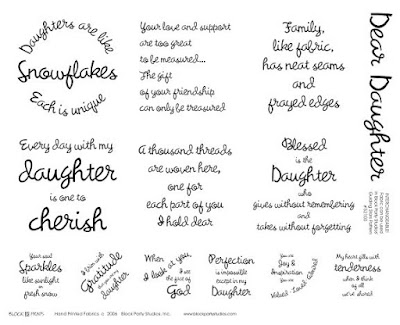 Daughters are like
Snowflakes
Each is unique
Your love and support
are too great
to be measured...
The gift
of your friendship
can only be treasured
Family,
like fabric,
has neat seams
and
frayed edges
Dear Daughter
Every day with my
daughter
is one to
cherish
A thousand threads
are woven here,
one for
each part of you
I hold dear
Blessed
is the
Daughter
who
gives without remembering
and
takes without forgetting
Your soul
Sparkles
like sunlight
on
fresh snow
I brim with
Gratitude
that you're my
daughter
When
I look at you,
I see
the face of
God
Perfection
is impossible
except in my
Daughter
You are
Joy &
Inspiration
You are
Valued Loved Adored
My heart fills with
tenderness
when I think
of all
we've shared
BLOCK PARTY PRINTS
Hand Printed Fabrics © 2006 Block Party Studios, Inc.
www.blockpartystudios.com